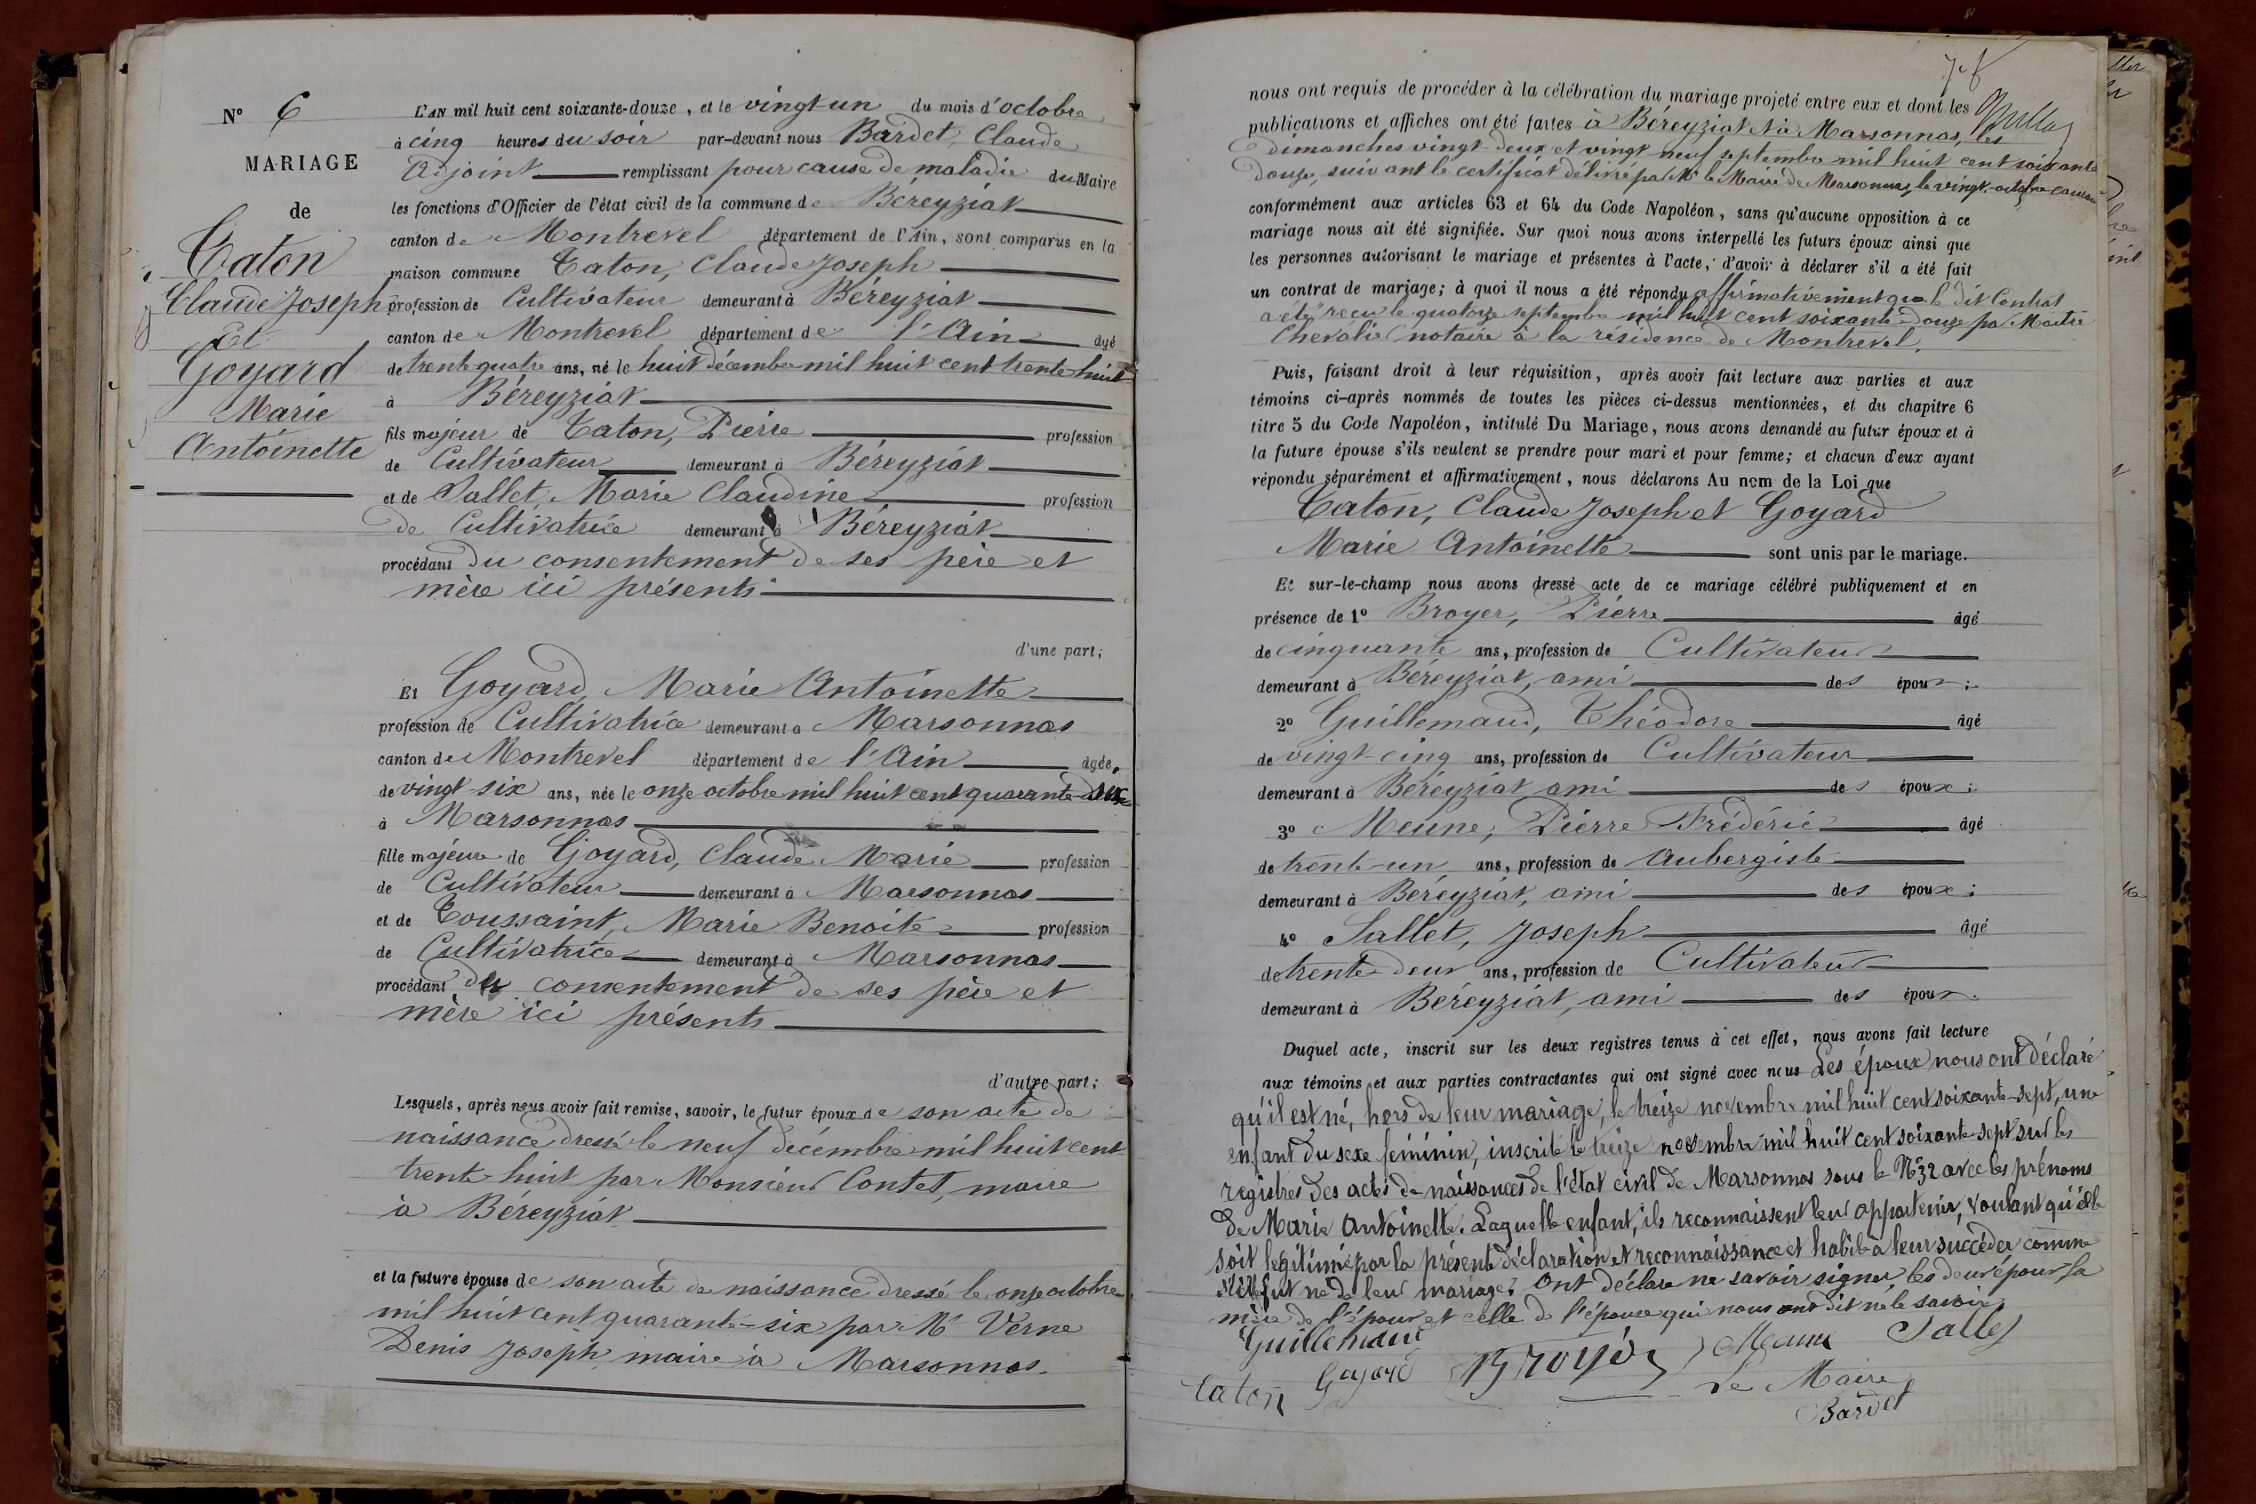 N° 6
MARIAGE
de
Caton
Claude Joseph
Et
Goyard
Marie
Antoinette
L'AN mil huit cent soixante-douze, et le vingt-un du mois d'octobre
à cinq heures du soir par-devant nous Bardet, Claude
Adjoint remplissant pour cause de maladie du Maire
les fonctions d'Officier de l'état civil de la commune de Béreyziat
canton de Montrevel département de l'Ain, sont comparus en la
maison commune Caton, Claude Joseph
profession de Cultivateur demeurant à Béreyziat
canton de Montrevel département de l'Ain âgé
de trente quatre ans, né le huit décembre mil huit cent trente-huit
à Béreyziat
fils majeur de Caton, Pierre profession
de Cultivateur demeurant à Béreyziat
et de Sallet, Marie Claudine profession
de Cultivatrice demeurant à Béreyziat
procédant du consentement de ses père et
mère ici présents
d'une part;
Et Goyard, Marie Antoinette
profession de Cultivatrice demeurant à Marsonnas
canton de Montrevel département de l'Ain âgée
de vingt-six ans, née le onze octobre mil huit cent quarante-six
à Marsonnas
fille majeure de Goyard, Claude Marie profession
de Cultivateur demeurant à Marsonnas
et de Toussaint, Marie Benoite profession
de Cultivatrice demeurant à Marsonnas
procédant du consentement de ses père et
mère ici présents
d'autre part;
Lesquels, après nous avoir fait remise, savoir, le futur époux de son acte de
naissance dressé le neuf décembre mil huit cent
trente huit par Monsieur Contet, maire
à Béreyziat
et la future épouse de son acte de naissance dressé le onze octobre
mil huit cent quarante-six par Mr Verne
Denis Joseph, maire à Marsonnas.
nous ont requis de procéder à la célébration du mariage projeté entre eux et dont les
publications et affiches ont été faites à Béreyziat et à Marsonnas, les
dimanches vingt-deux et vingt-neuf septembre mil huit cent soixante
douze, suivant le certificat délivré par Mr le Maire de Marsonnas, le vingt octobre courant
conformément aux articles 63 et 64 du Code Napoléon, sans qu'aucune opposition à ce
mariage nous ait été signifiée. Sur quoi nous avons interpellé les futurs époux ainsi que
les personnes autorisant le mariage et présentes à l'acte, d'avoir à déclarer s'il a été fait
un contrat de mariage; à quoi il nous a été répondu affirmativement que le dit Contrat
a été reçu le quatorze septembre mil huit cent soixante-douze par Maître
Chevalier notaire à la résidence de Montrevel.
Puis, faisant droit à leur réquisition, après avoir fait lecture aux parties et aux
témoins ci-après nommés de toutes les pièces ci-dessus mentionnées, et du chapitre 6
titre 5 du Code Napoléon, intitulé Du Mariage, nous avons demandé au futur époux et à
la future épouse s'ils veulent se prendre pour mari et pour femme; et chacun d'eux ayant
répondu séparément et affirmativement, nous déclarons Au nom de la Loi que
Caton, Claude Joseph et Goyard
Marie Antoinette sont unis par le mariage.
Et sur-le-champ nous avons dressé acte de ce mariage célébré publiquement et en
présence de 1° Broyer, Pierre âgé
de cinquante ans, profession de Cultivateur
demeurant à Béreyziat, ami des époux;
2° Guillemaud, Théodore âgé
de vingt-cinq ans, profession de Cultivateur
demeurant à Béreyziat, ami des époux;
3° Meune, Pierre Frédéric âgé
de trente-un ans, profession de Aubergiste
demeurant à Béreyziat, ami des époux;
4° Sallet, Joseph âgé
de trente-deux ans, profession de Cultivateur
demeurant à Béreyziat, ami des époux.
Duquel acte, inscrit sur les deux registres tenus à cet effet, nous avons fait lecture
aux témoins et aux parties contractantes qui ont signé avec nous Les époux nous ont déclaré
qu'il est né, hors de leur mariage, le treize novembre mil huit cent soixante-sept, une
enfant du sexe féminin, inscrite le treize novembre mil huit cent soixante-sept sur les
registres des actes de naissances de l'état civil de Marsonnas sous le N° 32 avec les prénoms
de Marie Antoinette. Laquelle enfant, ils reconnaissent leur appartenir, voulant qu'elle
soit légitimé par la présente déclaration et reconnaissance et habile à leur succéder comme
si elle fut né de leur mariage. Ont déclaré ne savoir signer, les deux époux la
mère de l'époux et celle de l'épouse qui nous ont dit ne le savoir
Guillemaud
Goyard
Broyer
Meune
Sallet
Caton
Le Maire
Bardet